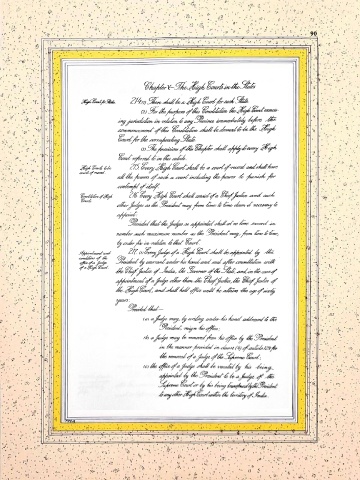 90
Chapter V.- The High Courts in the States
High Courts for States.
214.(1) There shall be a High Court for each State.
(2) For the purposes of this Constitution the High Court exercis-
ing jurisdiction in relation to any Province immediately before the
commencement of this Constitution shall be deemed to be the High
Court for the corresponding State.
(3) The provisions of this Chapter shall apply to every High
Court referred to in this article.
High Courts to be
courts of record.
215. Every High Court shall be a court of record and shall have
all the powers of such a court including the power to punish for
contempt of itself.
Constitution of High
Courts.
216. Every High Court shall consist of a Chief Justice and such
other Judges as the President may from time to time deem it necessary to
appoint:
Provided that the Judges so appointed shall at no time exceed in
number such maximum number as the President may, from time to time,
by order fix in relation to that Court.
Appointment and
conditions of the
office of a Judge
of a High Court.
217. (1) Every Judge of a High Court shall be appointed by the
President by warrant under his hand and seal after consultation with
the Chief Justice of India, the Governor of the State, and, in the case of
appointment of a Judge other than the Chief Justice, the Chief Justice of
the High Court, and shall hold office until he attains the age of sixty
years:
Provided that—
(a) a Judge may, by writing under his hand addressed to the
President, resign his office;
(b) a Judge may be removed from his office by the President
in the manner provided in clause (4) of article 124 for
the removal of a Judge of the Supreme Court;
(c) the office of a Judge shall be vacated by his being
appointed by the President to be a Judge of the
Supreme Court or by his being transferred by the President
to any other High Court within the territory of India.